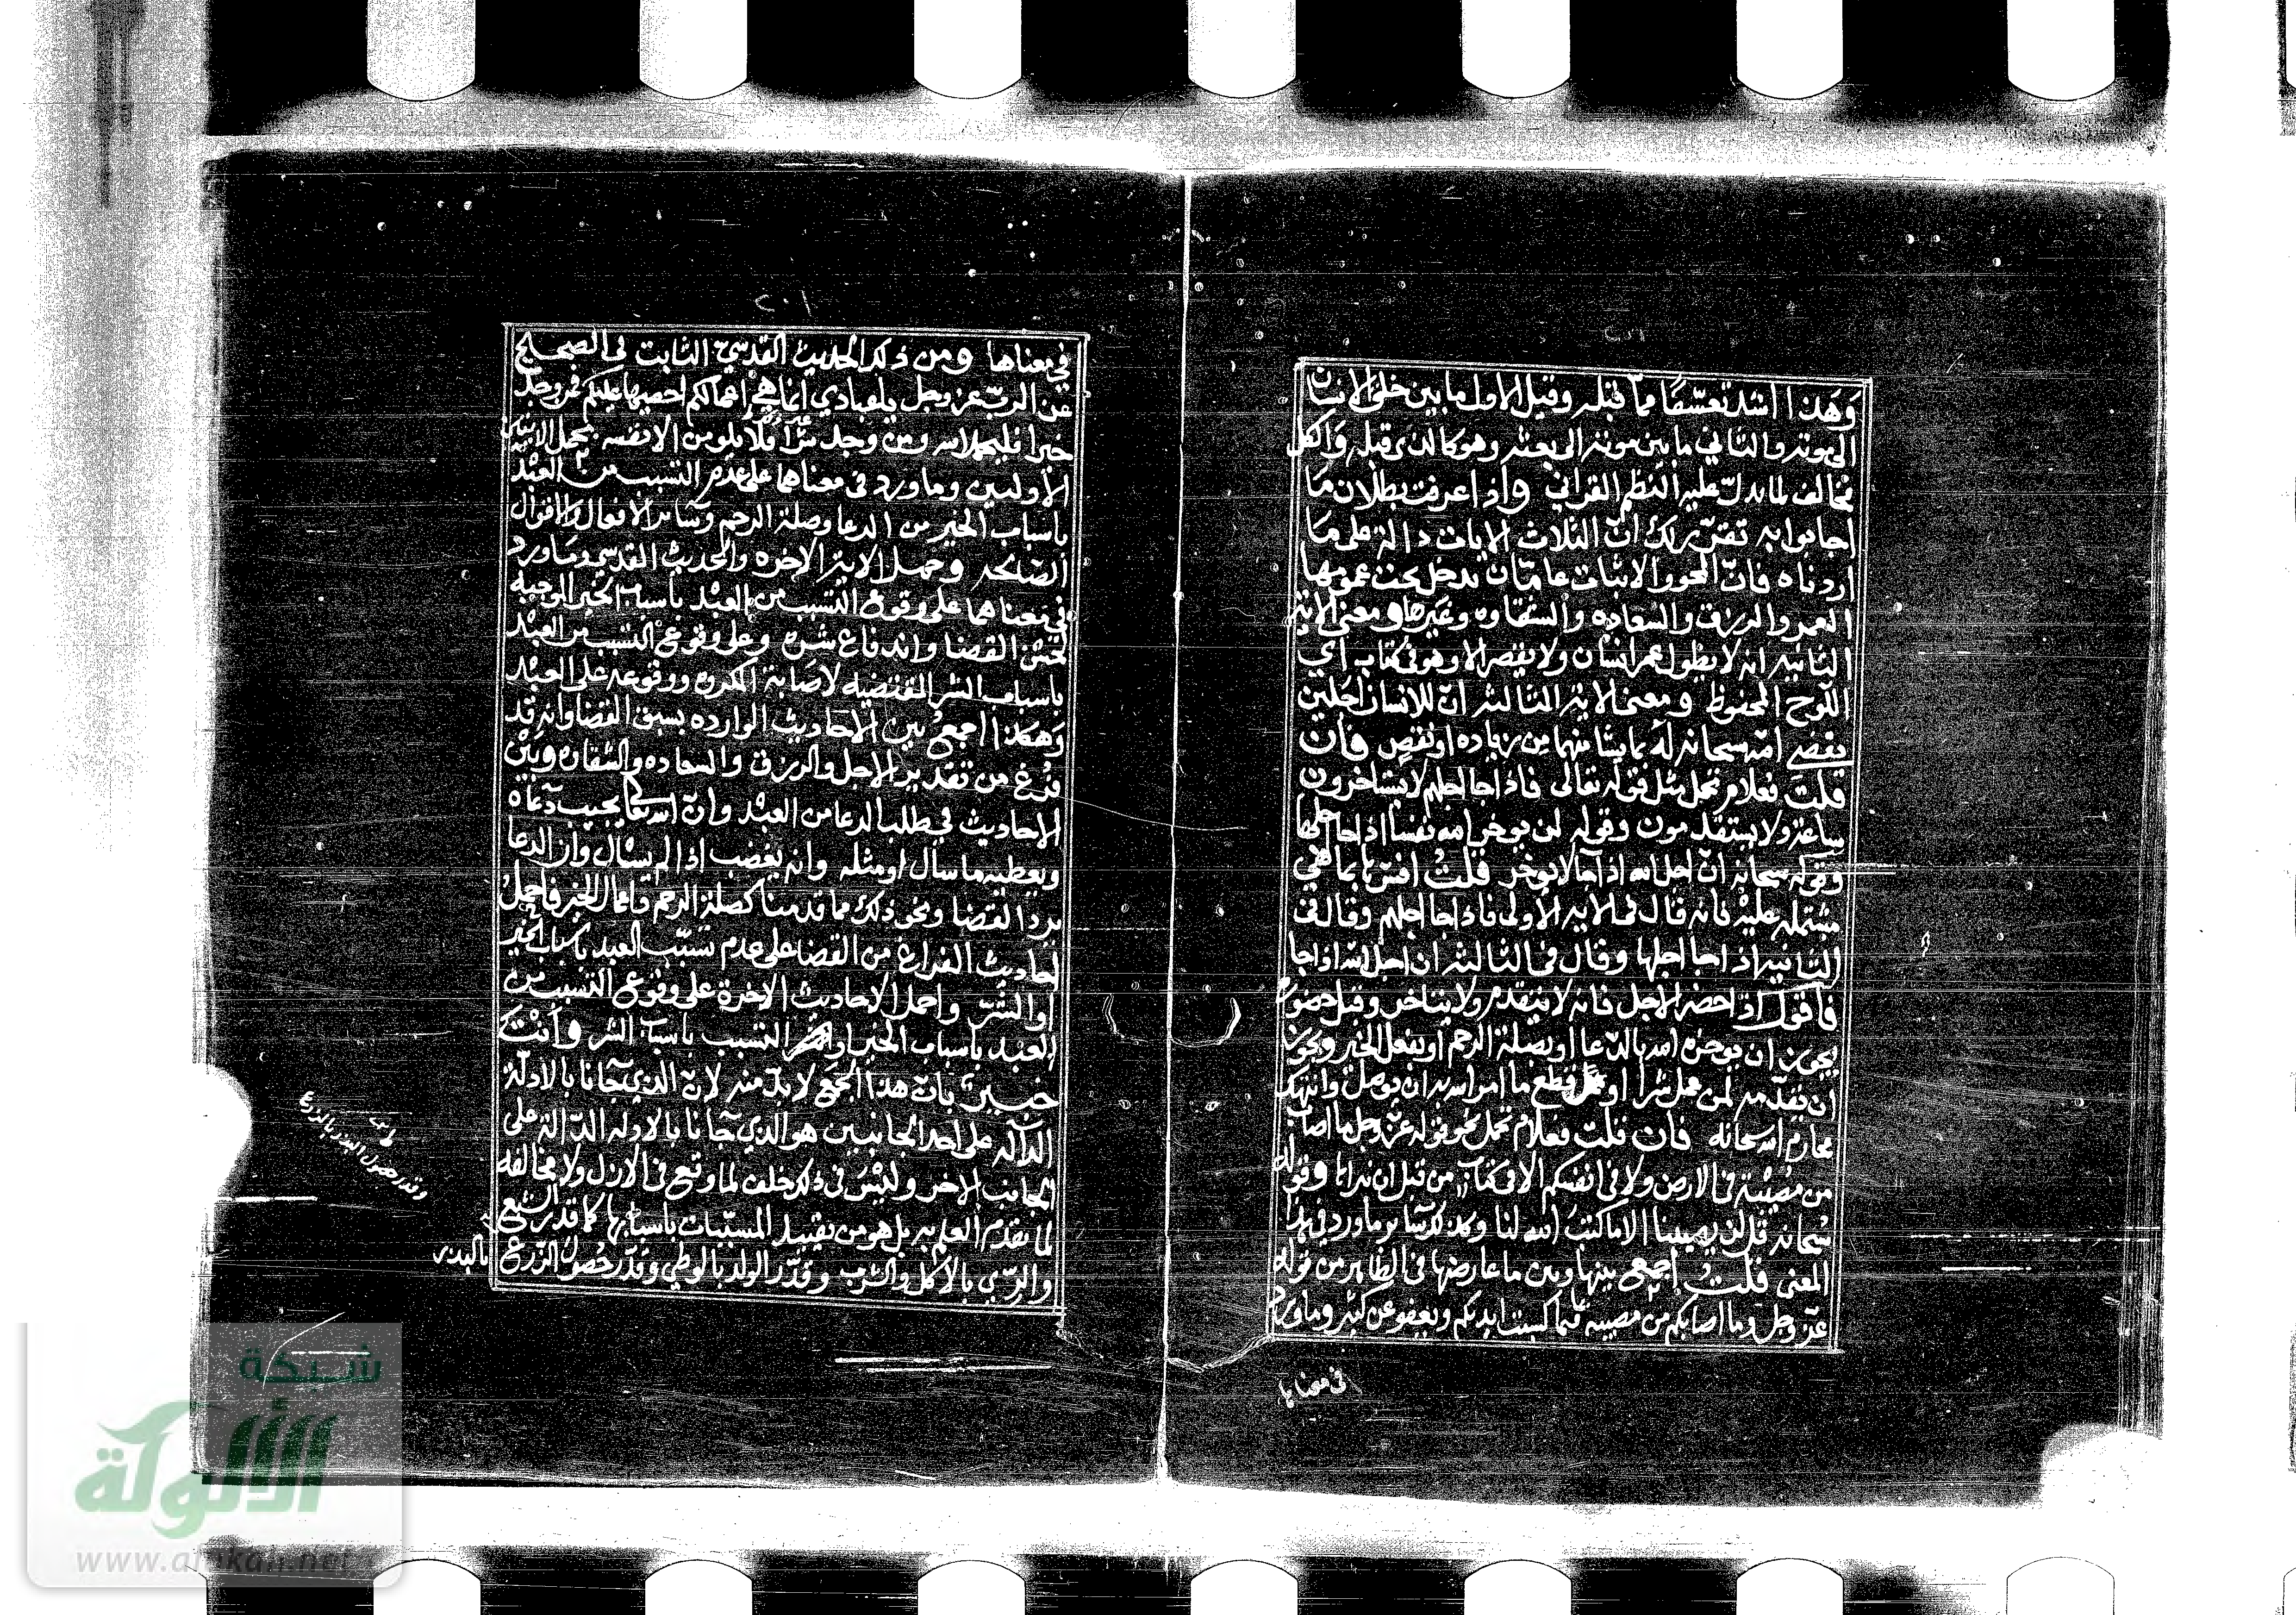 وهذا اشد تعسفا مما قبله وقيل الاول ما بين خلق الانسان
الى موته والثاني ما بين موته الى بعثه وهو كالذي قبله والكل
مخالف لما يدل عليه النظم القراني واذا عرفت بطلان ما
اجابوا به تقرر لك ان الثلاث الايات دالة على ما
اردناه فان المحو والاثبات عامان يدخل تحت عمومهما
العمر والرزق والسعاده والشقاوه وغيرها ومعنى الاية
الثانيه انه لا يطول عمر انسان ولا يقصر الا وهو في كتاب اي
اللوح المحفوظ ومعنى الاية الثالثة ان للانسان اجلين
يقضي الله سبحانه له بما يشا منهما من زياده او نقص فان
قلت فعلام تحمل مثل قوله تعالى فاذا جا اجلهم لا يستاخرون
ساعة ولا يستقدمون وقوله لن يوخر الله نفسا اذا جا اجلها
وقوله سبحانه ان اجل الله اذا جا لا يوخر قلت افسرها بما هي
مشتمله عليه فانه قال في الاية الاولى فاذا جا اجلهم وقال في
الثانيه اذا جا اجلها وقال في الثالثة ان اجل الله اذا جا
فاقول اذا حضر الاجل فانه لا يتقدم ولا يتاخر وقبل حضوره
يجوز ان يوخره الله بالدعا او بصلة الرحم او بفعل الخير ويجوز
ان يقدمه لمن عمل شرا او قطع ما امر الله به ان يوصل وانتهك
محارم الله سبحانه فان قلت فعلام تحمل نحو قوله عز وجل ما اصاب
من مصيبة في الارض ولا في انفسكم الا في كتاب من قبل ان نبراها وقوله
سبحانه قل لن يصيبنا الا ما كتب الله لنا وكذلك ساير ما ورد في هذا
المعنى قلت اجمع بينها وبين ما عارضها في الظاهر من قوله
عز وجل وما اصابكم من مصيبة فبما كسبت ايديكم ويعفو عن كثير وما ورد
في معناها
٢٠١
في معناها ومن ذلك الحديث القدسي الثابت في الصحيح
عن الرب عز وجل يا عبادي انما هي اعمالكم احصيها عليكم فمن وجد
خيرا فليحمد الله ومن وجد شرا فلا يلومن الا نفسه بحمل الايتين
الاولتين وما ورد في معناهما على عدم التسبب من العبد
باسباب الخير من الدعا وصلة الرحم وسائر الافعال والاقوال
الصالحه وحمل الاية الاخره والحديث القدسي وما ورد
في معناهما على وقوع التسبب من العبد باسباب الخير الموجبه
لحسن القضا واندفاع شره وعلى وقوع التسبب من العبد
باسباب الشر المقتضيه لاصابة المكروه ووقوعه على العبد
وهكذا اجمع بين الاحاديث الوارده بسبق القضا وانه قد
فرغ من تقدير الاجل والرزق والسعاده والشقاوه وبين
الاحاديث في طلب الدعا من العبد وان الله تعالى يجيب دعاه
ويعطيه ما سال او مثله وانه يغضب اذا لم يسال وان الدعا
يرد القضا ونحو ذلك مما قدمنا كصلة الرحم واعمال الخير فاحمل
احاديث الفراغ من القضا على عدم تسبب العبد باسباب الخير
او الشر واحمل الاحاديث الاخرة على وقوع التسبب من
العبد باسباب الخير او التسبب باسباب الشر وانت
خبير بان هذا الجمع لا بد منه لان الذي جانا بالادلة
الدالة على احد الجانبين هو الذي جانا بالادله الدالة على
الجانب الاخر وليس في ذلك خلف لما وقع في الازل ولا مخالفه
لما تقدم العلم به بل هو من تقييد المسببات باسبابها كما قدر الشبع
والري بالاكل والشرب وقدر الولد بالوطي وقدر حصول الزرع
بالبذر
وقدر حصول البذر بالزرع
شبكة
الألوكة
www.alukah.net